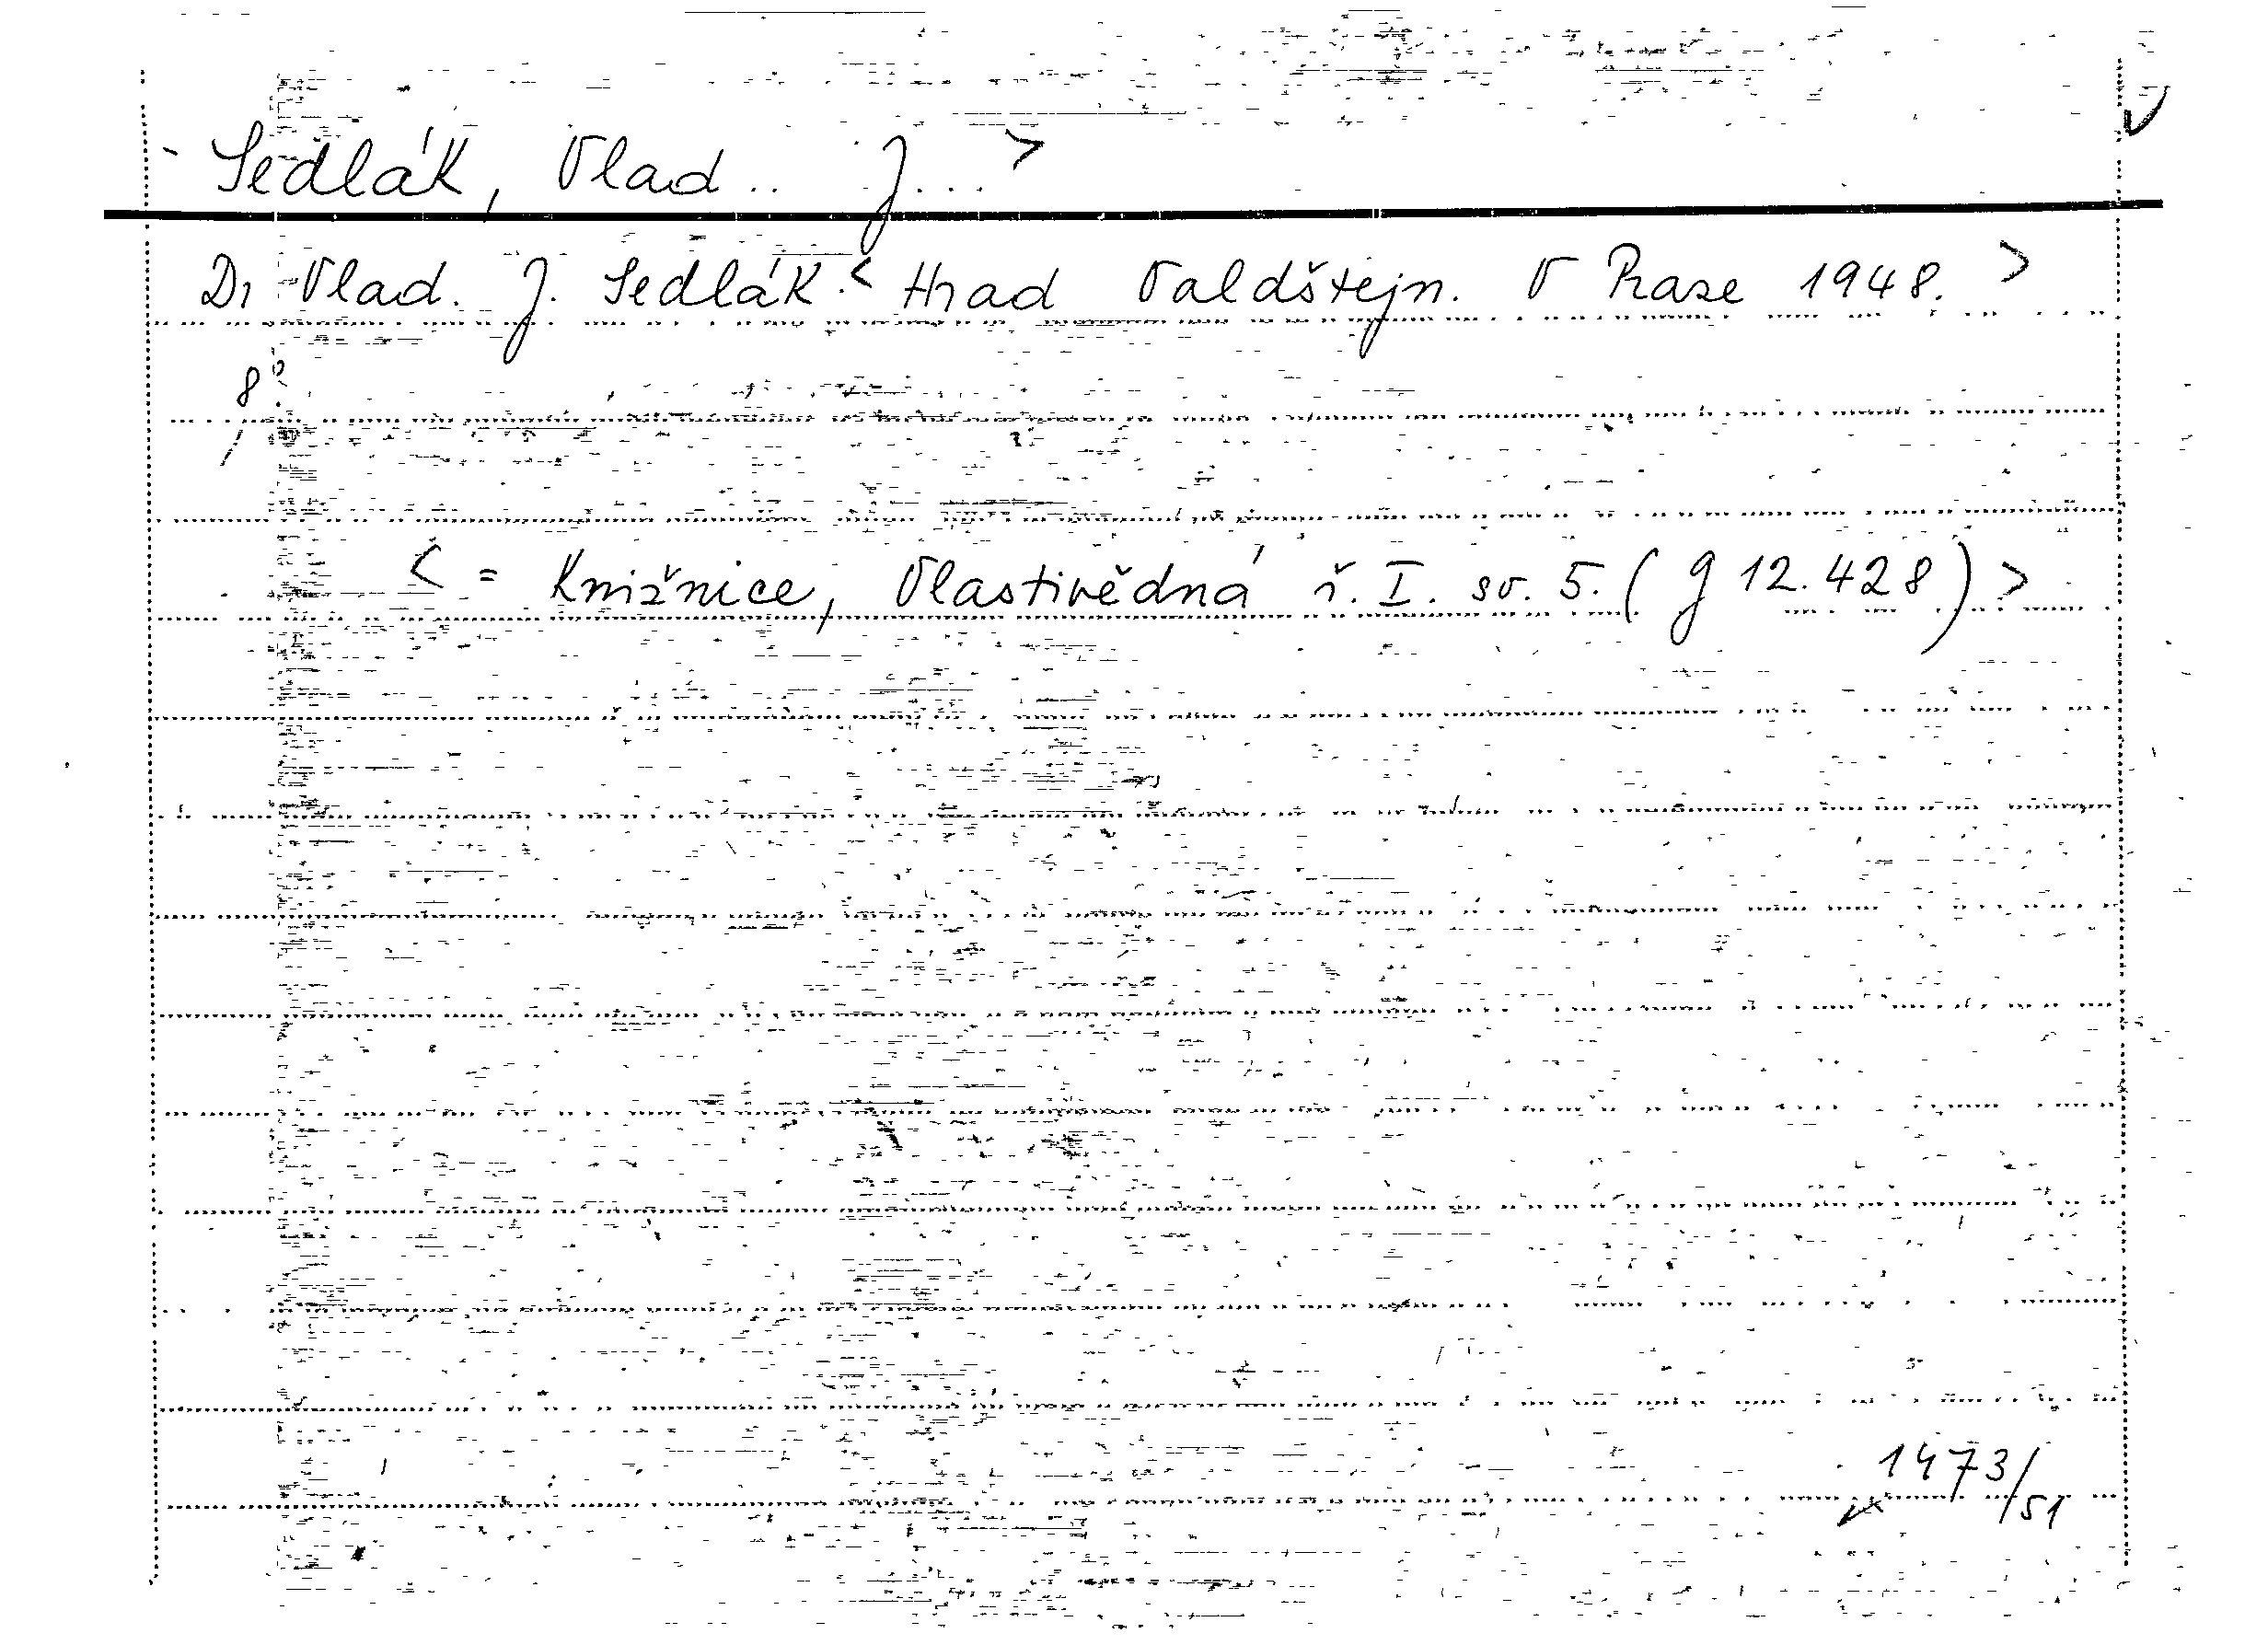 Sedlák, Vlad.. J... >
Dr Vlad. J. Sedlák: < Hrad Valdštejn. V Praze 1948. >
8°
< = Knižnice, Vlastivědná ř. I. sv. 5. ( g 12.428) >
1473/51